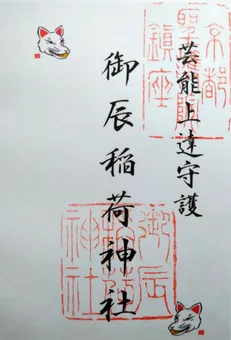 芸能上達守護
御辰稲荷神社
京都
鎮座
御辰
稲荷
神社